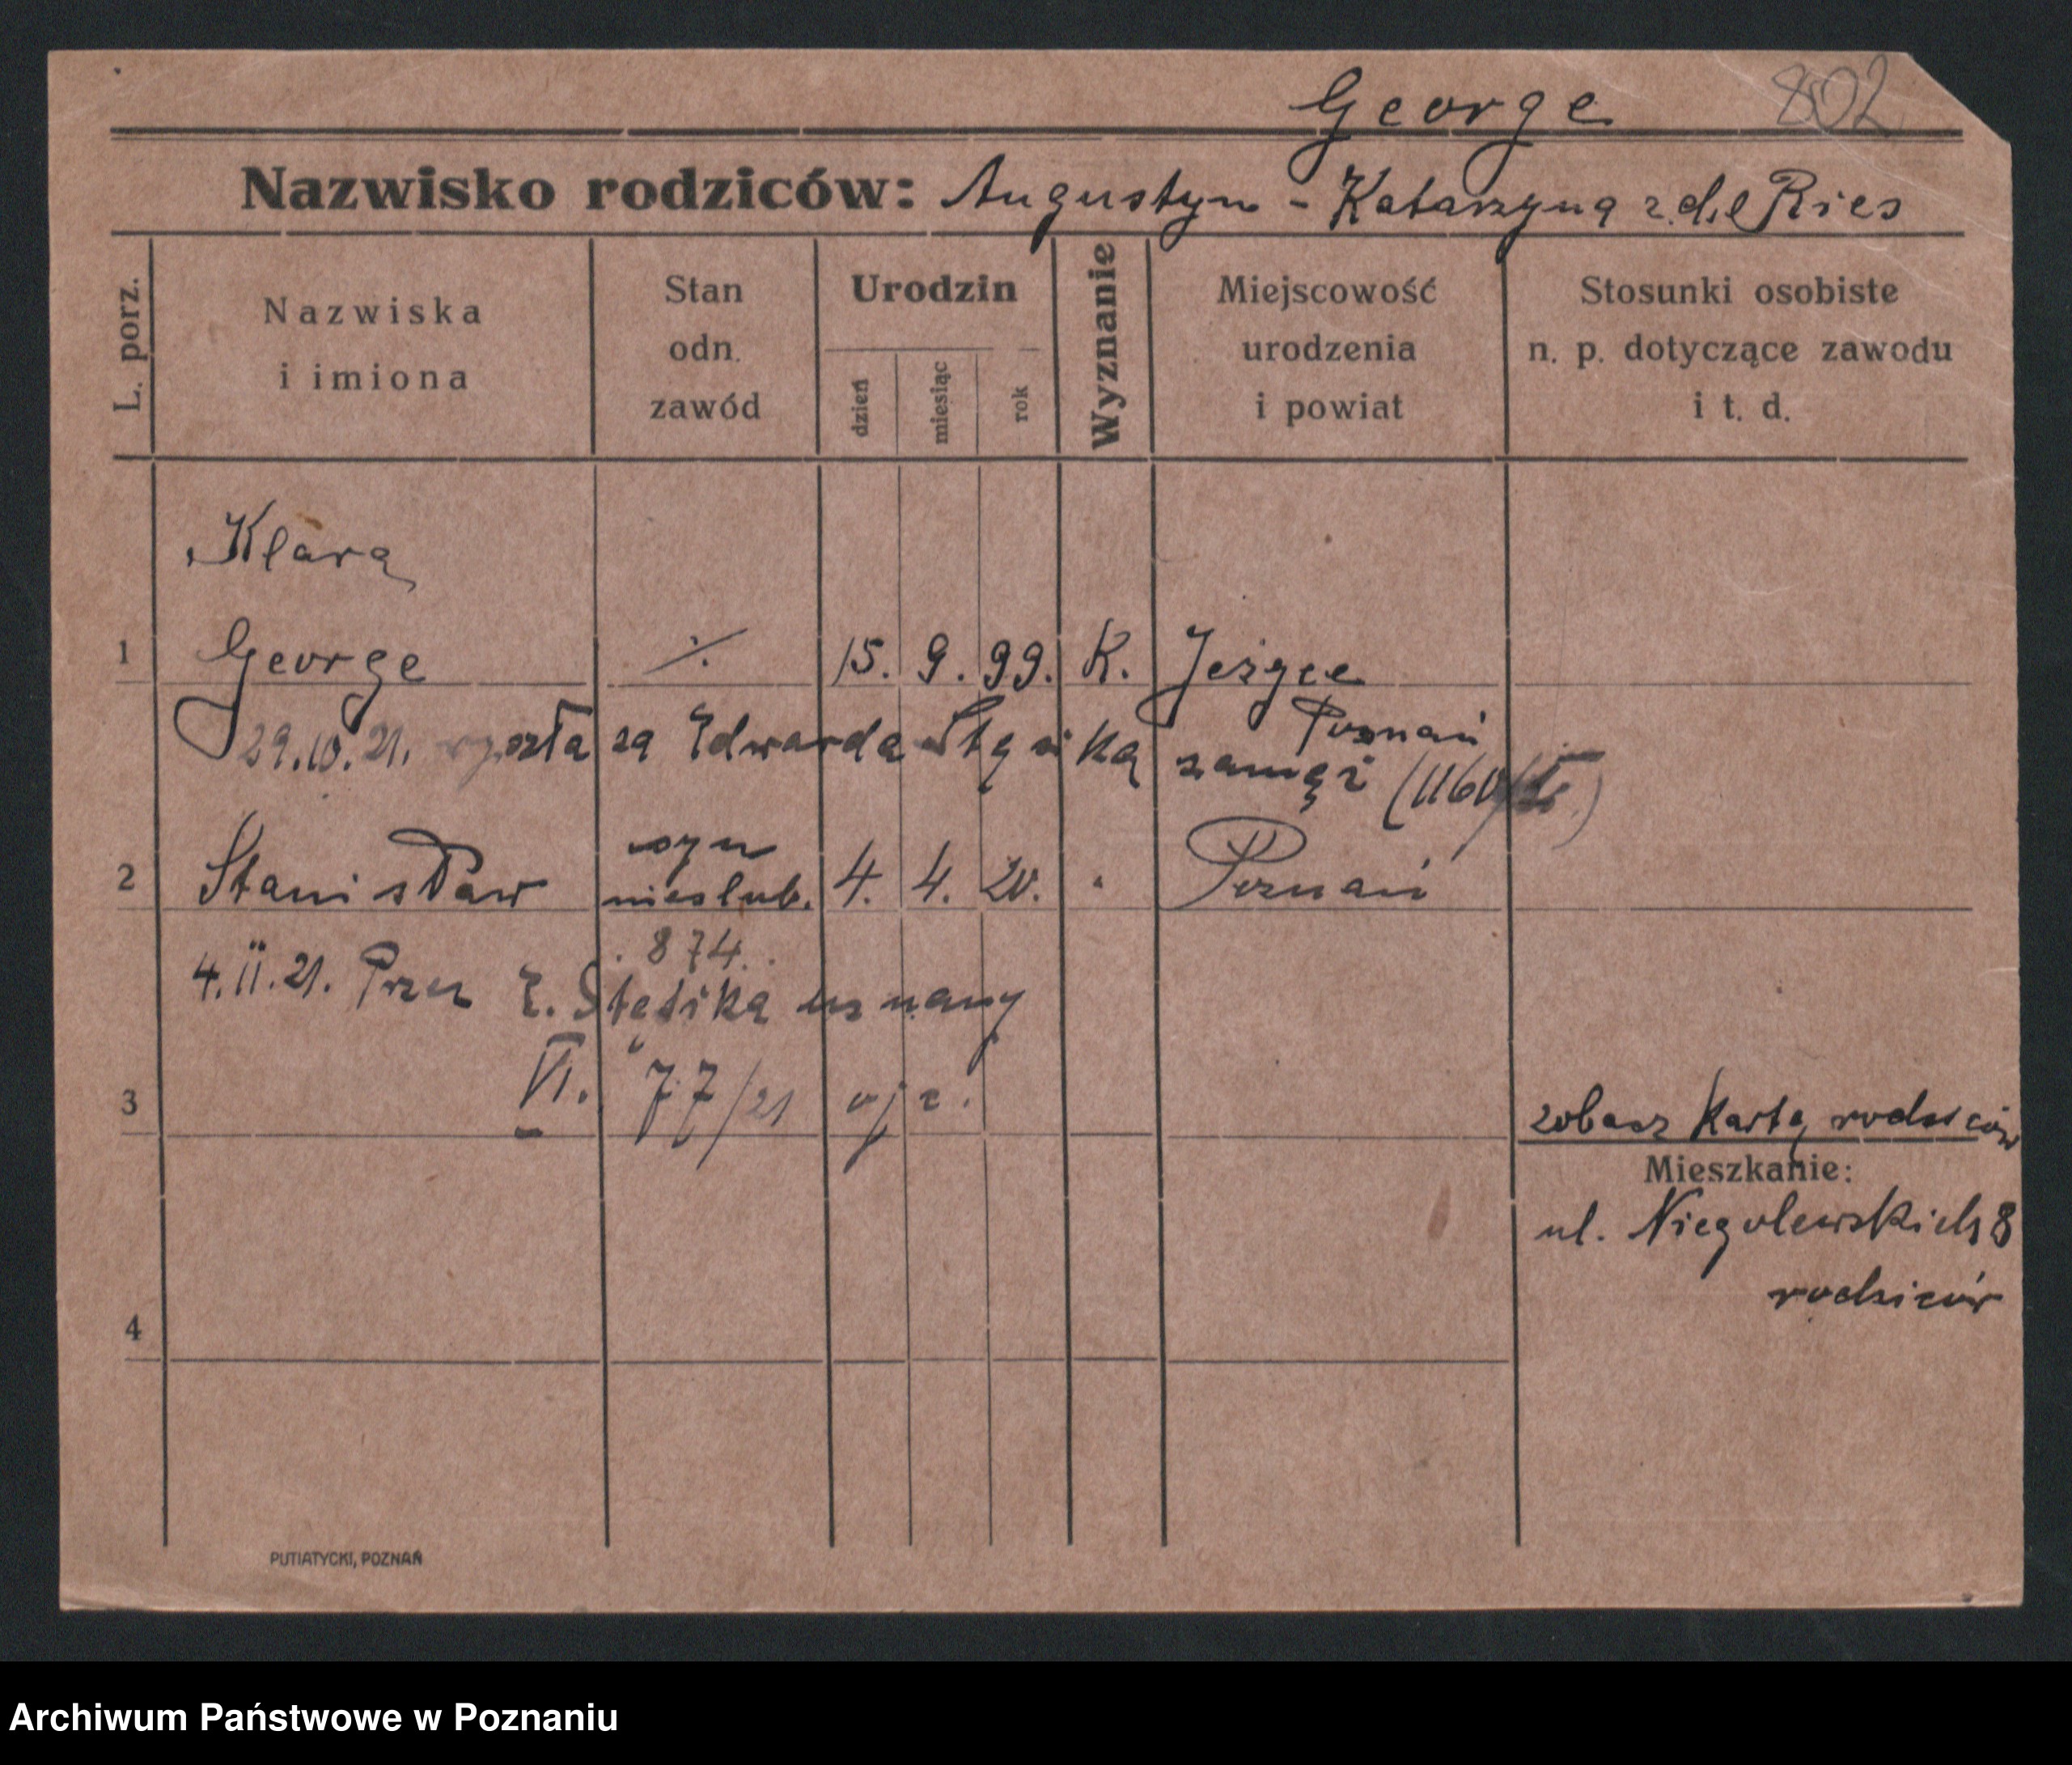 George 802
Nazwisko rodziców: Augustyn - Katarzyna z d. Ries
L. porz.
Nazwiska
i imiona
Stan
odn.
zawód
Urodzin
dzień
miesiąc
rok
Wyznanie
Miejscowość
urodzenia
i powiat
Stosunki osobiste
n. p. dotyczące zawodu
i t. d.
Klara
1 George ./. 15. 9. 99. K. Jeżyce
Poznań
29.10.21. wyszła za Edwarda zamęż (1160/
syn
2 Stanisław nieślub. 4. 4. 20. " Poznań
874.
4.II.21. Przez E. Stęsika uznany
3 VI. 77/21 ojc.
zobacz kartę rodziców
Mieszkanie:
ul. Niegolewskich 8
rodziców
4
PUTIATYCKI, POZNAŃ
Archiwum Państwowe w Poznaniu